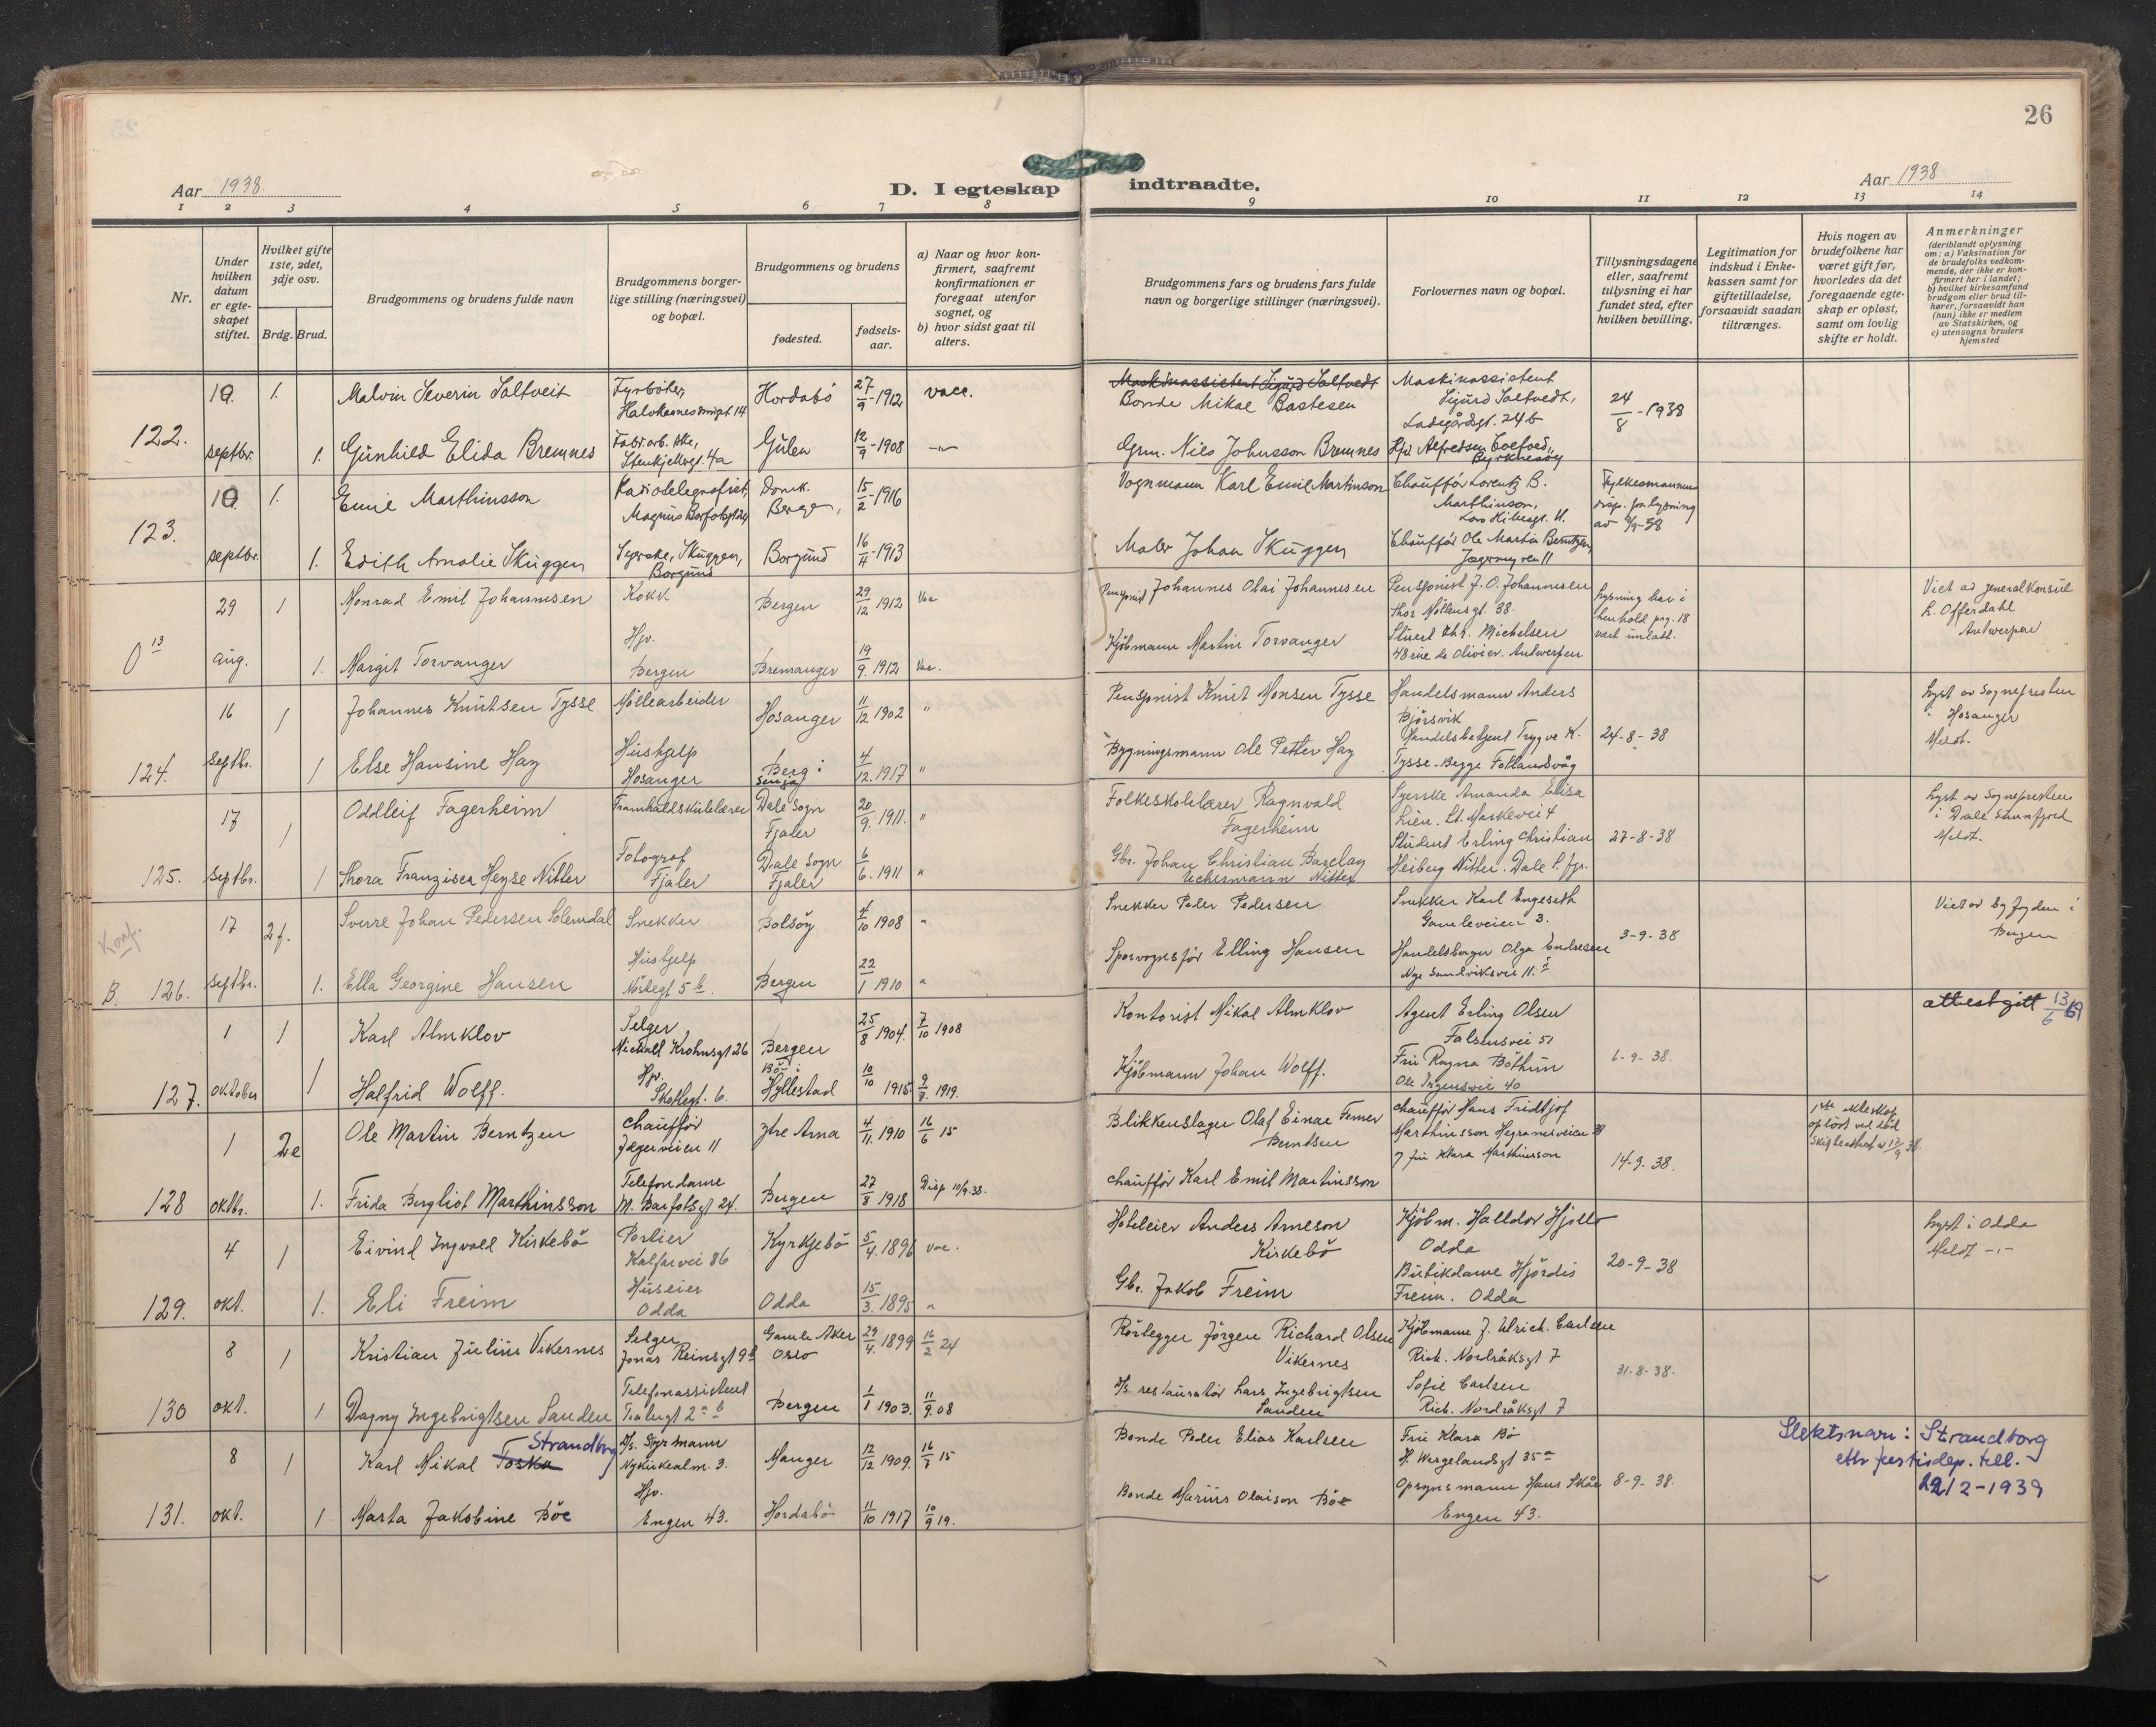 26
Aar 1938.
D. I egteskap indtraadte.
Aar 1938
1 2 3 4 5 6 7 8 9 10 11 12 13 14
Nr.
Under hvilken datum er egteskapet stiftet.
Hvilket gifte 1ste, 2det, 3dje osv.
Brdg. Brud.
Brudgommens og brudens fulde navn
Brudgommens borgerlige stilling (næringsvei) og bopæl.
Brudgommens og brudens
fødested.
fødselsaar.
a) Naar og hvor konfirmert, saafremt konfirmationen er foregaat utenfor sognet, og
b) hvor sidst gaat til alters.
Brudgommens fars og brudens fars fulde navn og borgerlige stillinger (næringsvei).
Forlovernes navn og bopæl.
Tillysningsdagene eller, saafremt tillysning ei har fundet sted, efter hvilken bevilling.
Legitimation for indskud i Enkekassen samt for giftetilladelse, forsaavidt saadan tiltrænges.
Hvis nogen av brudefolkene har været gift før, hvorledes da det foregaaende egteskap er opløst, samt om lovlig skifte er holdt.
Anmerkninger
(deriblandt oplysning om: a) Vaksination for de brudefolks vedkommende, der ikke er konfirmert her i landet; b) hvilket kirkesamfund brudgom eller brud tilhører, forsaavidt han (hun) ikke er medlem av Statskirken, og c) utensogns bruders hjemsted
122. 10 septbr. 1. Malvin Severin Saltveit Fyrbøter, Hordabö 27/9-1912 vacc.
Maskinassistent Sigurd Saltvedt
Bonde Mikal Bastesen
Maskinassistent Sigurd Saltvedt, Ladegårdsgt. 24b
24/8-1938
1. Gunhild Elida Bremnes Fabr.arb.ske, 4a Gulen 12/9-1908 -"-
Grm. Nils Johnsson Bremnes
123. 10 septbr. 1. Emil Marthinsson Radiotelegrafist, Magnus Barfotsgt 24 Domk. Bergen, 15/2-1916
Vognmann Karl Emil Martinson
Chauffør Lorentz B. Marthinson,
Fylkesmannens
1. Edith Amalie Skuggen Syerske, Skuggen, Borgund Borgund 16/4-1913
Maler Johan Skuggen
Chauffør Ole Martin Berntzen, Jægerveien 11
0 13 29 aug. 1 Monrad Emil Johannesen Kokk Bergen 29/12 1912 Vac
Pensjonist Johannes Olai Johannesen
Pensjonist J. O. Johannesen 38.
Lysning har i henhold pag. 18 vært unlatt.
Viet av generalkonsul L. Offerdahl Antwerpen
1. Margit Torvanger Hjv. Bergen Bremanger 19/9. 1912 Vac.
Kjöbmann Martin Torvanger
Chr. Michelsen 48 rue de Olivier. Antwerpen
124. 16 septbr. 1 Johannes Knutsen Tysse Møllearbeider Hosanger 11/12 1902 "
Pensjonist Knut Monsen Tysse
Handelsmann Anders Bjørsvik
24-8-38
Lyst av Sognepresten i Hosanger Meldt.
1 Else Hansine Hay Hushjelp Hosanger Berg i Senja 4/12. 1917 "
Bygningsmann Ole Petter Hay
Handelsbetjent Trygve K. Tysse. Begge Fotlandsvåg
125. 17 septbr. 1 Oddleif Fagerheim Framhaldskulelærer Dale Sogn Fjaler 20/9. 1911. "
Folkeskolelærer Ragnvald Fagerheim
Syerske Amanda Elisa Lien. Lt. Markevei 4
27-8-38
Lyst av Sognepresten i Dale Sunnfjord Meldt.
1 Thora Franzisca Heyse Nitter Fotograf Fjaler Dale Sogn Fjaler 6/6. 1911 "
Gbr. Johan Christian Barclay Uchermann Nitter
Student Erling Christian Heiberg Nitter. Dale S. fjr.
Konf.
B. 126. 17 septbr. 2f. Sverre Johan Pedersen Solemdal Snekker Bolsöy 4/10 1908 "
Snekker Peder Pedersen
Snekker Karl Engeseth Gamleveien 3.
3-9-38
Viet av byfogden i Bergen
1. Ella Georgine Hansen Hushjelp 5b. Bergen 22/1 1910 "
Sporvognsfør Elling Hansen
Olga Endresen Nye Sandviksvei 11.
127. 1 oktober 1 Karl Almklov Selger, Michael Krohnsgt 26 Bergen 25/8 1904. 7/10 1908
Kontorist Mikal Almklov
Agent Erling Olsen Falsensvei 51
6-9-38.
attest gitt 13/6 69
1 Halfrid Wolff. Hjv. 6. Böe i Hyllestad 10/10 1915 9/9. 1919.
Kjöbmann Johan Wolff.
Fru Ragna Böthun Ole Irgensvei 40
128 1 oktbr. 2e Ole Martin Berntzen Chauffør Jægerveien 11 Ytre Arna 4/11. 1910 16/6 15
Blikkenslager Olaf Einar Ferner Berntsen
Chauffør Hans Fridtjof Marthinsson
14-9-38.
1ste ekteskap oplöst ved död
1. Frida Bergliot Marthinsson Telefondame M. Barfotsgt 24. Bergen 27/8 1918 Disp 10/9.38.
Chauffør Karl Emil Martinsson
Fru Klara Marthinsson
129. 4 okt. 1 Eivind Ingvald Kirkebö Portier Kalfarvei 86 Kyrkjebö 5/4. 1896 vac.
Hoteleier Anders Arneson Kirkebö
Kjöbm. Halldor Hjelle Odda
20-9-38
Lyst i Odda Meldt -"-
1. Eli Freim Huseier Odda Odda 15/3. 1895 "
Gbr. Jakob Freim
Butikdame Hjördis Freim. Odda
130 8 okt. 1 Kristian Julius Vikernes Selger Jonas Reinsgt 9b Gamle Aker Oslo 29/4. 1899 16/2 24
Rörlegger Jörgen Richard Olsen Vikernes
Kjöbmann J. Ulrich. Carlsen Rich. Nordråksgt 7
31-8-38.
1 Dagny Ingebrigtsen Sanden Telefonassistent Bergen 1/1 1903. 11/9. 08
D/s. restauratør Lars Ingebrigtsen Sanden
Sofie Carlsen Rich. Nordråksgt 7
131. 8 okt. 1 Karl Mikal Toska Strandborg D/s. Styrmann Nykirkealm. 3. Manger 12/12 1909. 16/7 15
Bonde Peder Elias Karlsen
Fru Klara Bö H. Wergelandsgt 35a
8-9-38.
Slektsnavn: Strandborg
etter justisdep. till.
22/12-1939
1 Marta Jakobine Böe Hjv. Engen 43. Hordabö 11/10 1917 10/9 19.
Bonde Marius Olaison Böe
Opsynsmann Hans Skåe Engen 43.